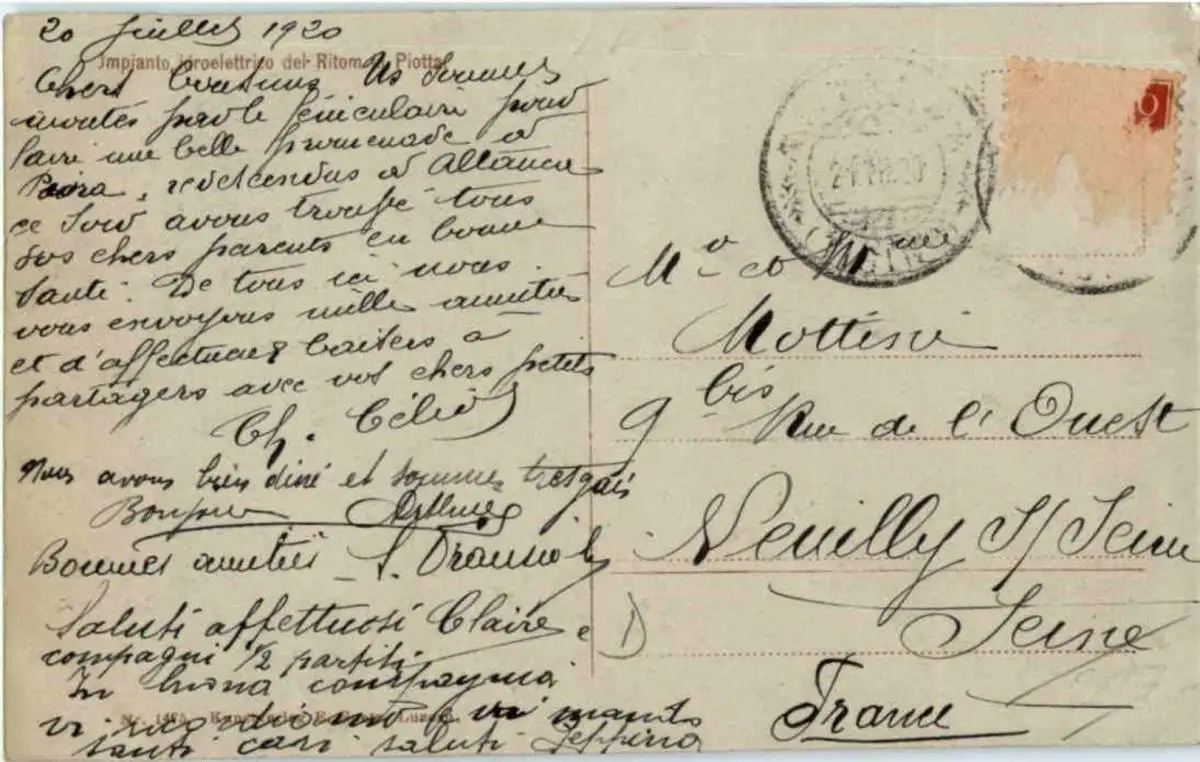 20 Juillet 1920
Impianto idroelettrico del Ritom - Piotta
Chers Cousins Ns sommes
montés par le funiculaire pour
faire une belle promenade à
Piora, redescendus à
ce soir avons trouvé tous
vos chers parents en bonne
santé. De tous ici nous
vous envoyons mille amitiés
et d'affectueux baisers à
partagers avec vos chers petits
Ch.
Nous avons bien diné et sommes tres gais
Bonjour
Bonnes amitiés
Saluti affettuosi Claire e
compagni 1/2 partiti
In buona compagnia
vi e vi mando
tanti cari saluti Peppina
Mr et Mme
Mottini
9 bis Rue de l'Ouest
Neuilly S/ Seine
Seine
France
D